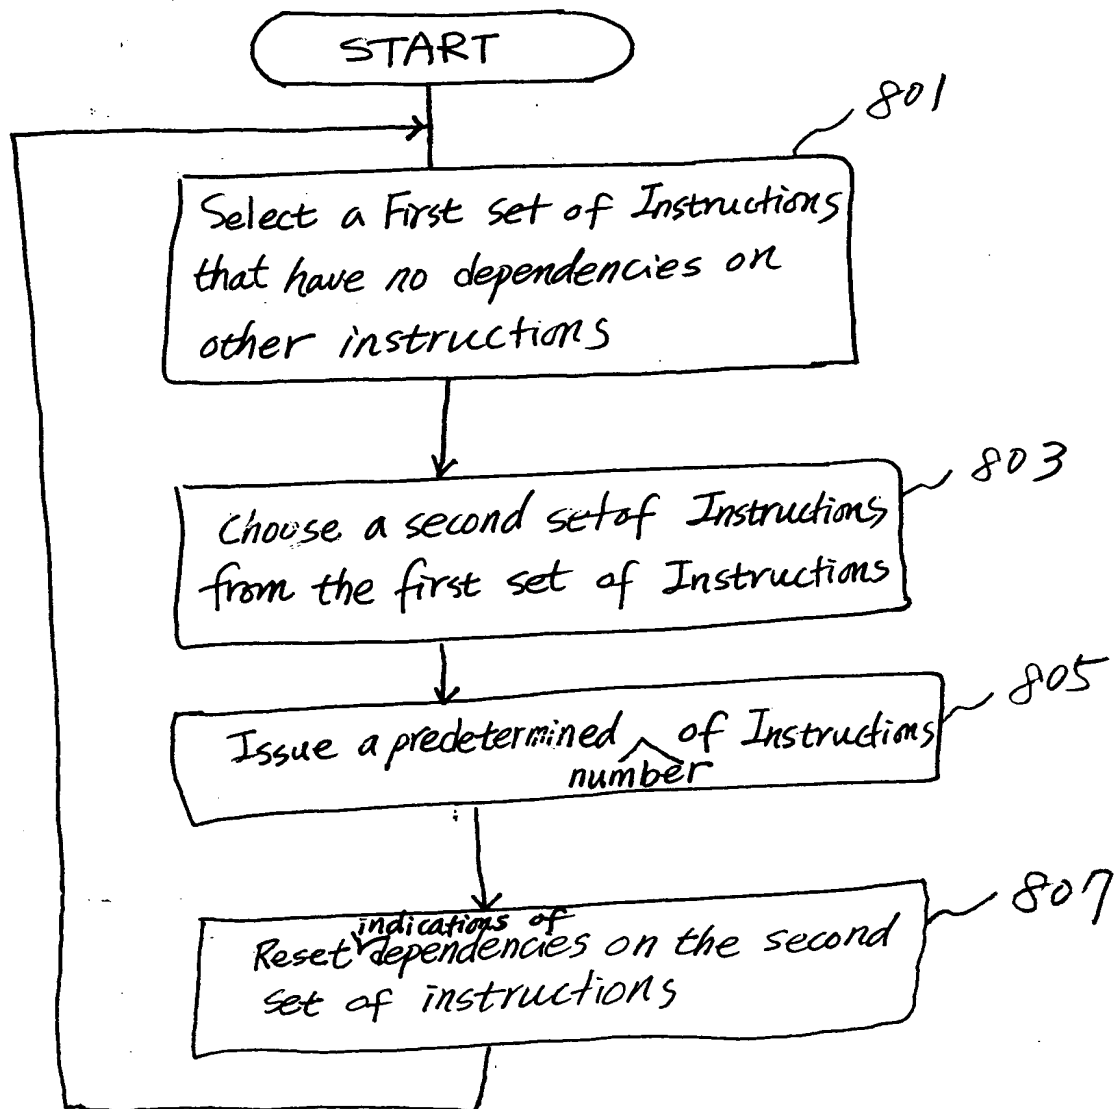 START
801
Select a First set of Instructions
that have no dependencies on
other instructions
803
Choose a second set of Instructions
from the first set of Instructions
805
Issue a predetermined number of Instructions
807
Reset indications of dependencies on the second
set of instructions